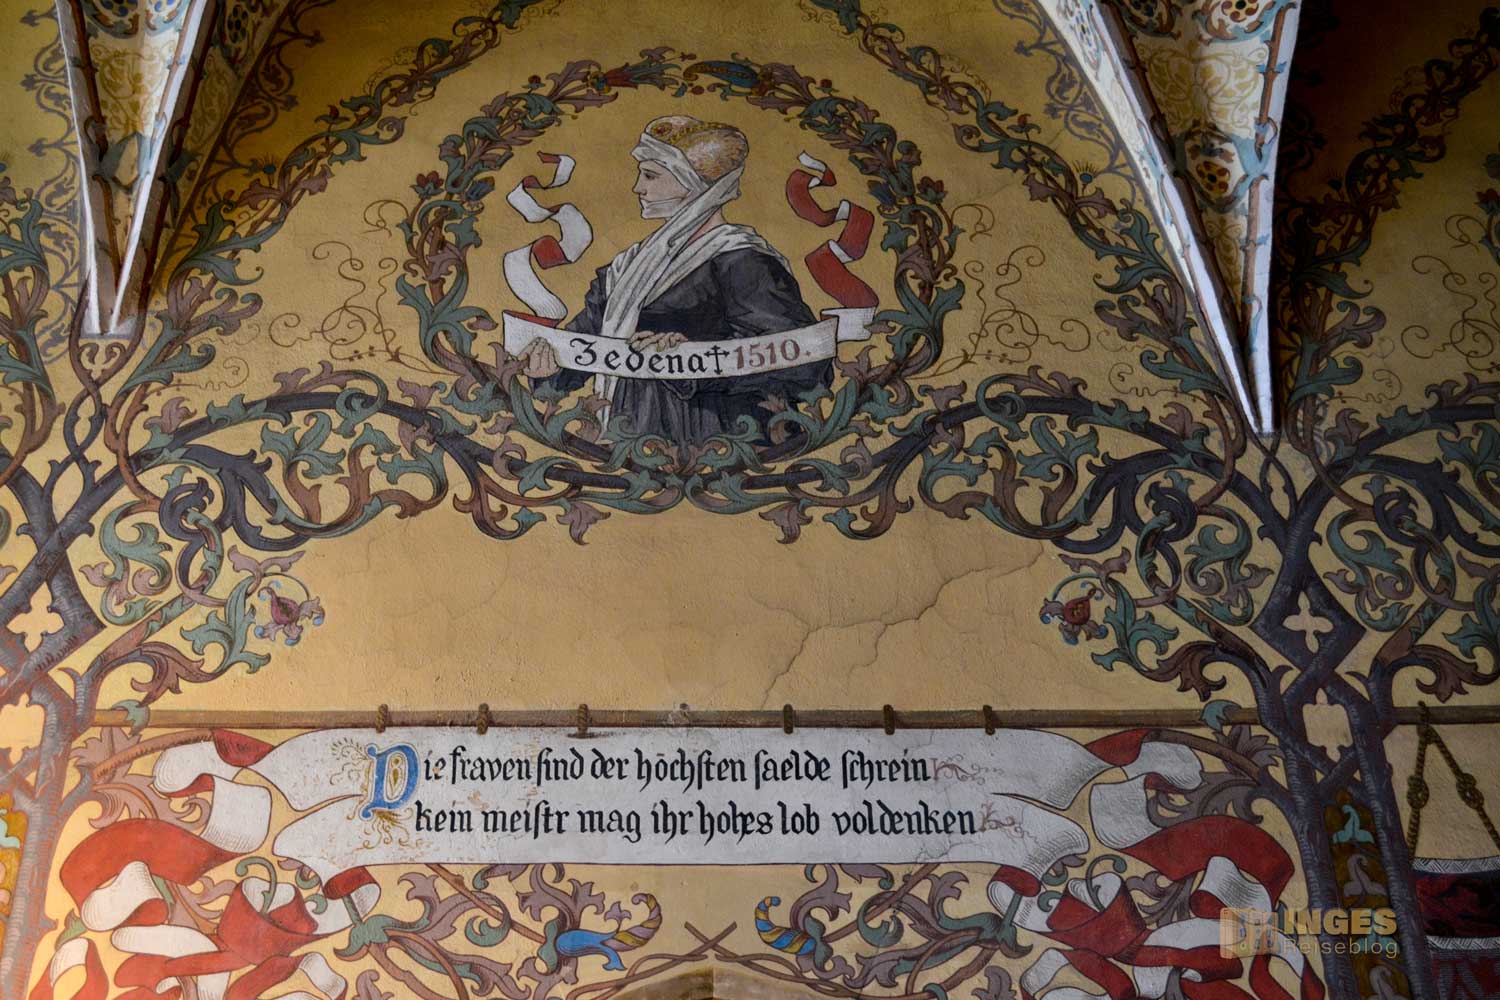 Zedena † 1510.
Die fraven sind der höchsten saelde schrein
kein meistr mag ihr hohes lob voldenken.
INGES
Reiseblog